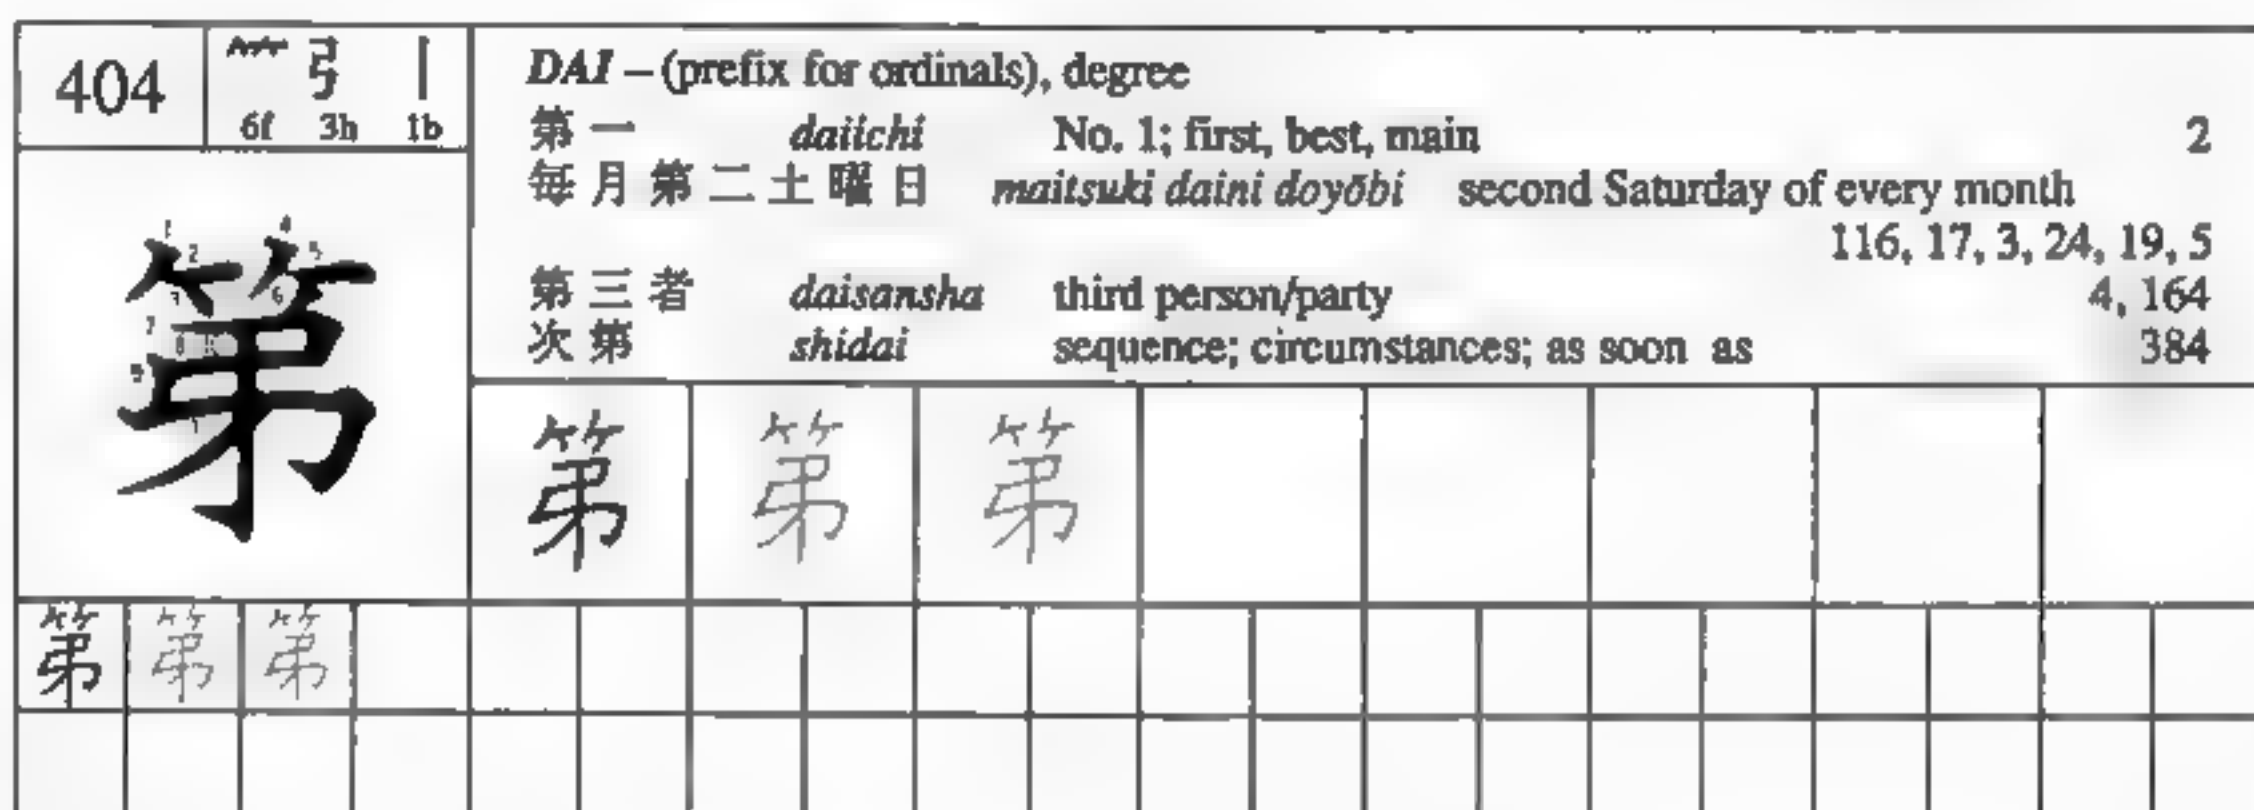 404
6f 3h 1b
DAI – (prefix for ordinals), degree
第一 daiichi No. 1; first, best, main 2
毎月第二土曜日 maitsuki daini doyōbi second Saturday of every month
116, 17, 3, 24, 19, 5
第三者 daisansha third person/party 4, 164
次第 shidai sequence; circumstances; as soon as 384
第
第 第 第
第 第 第